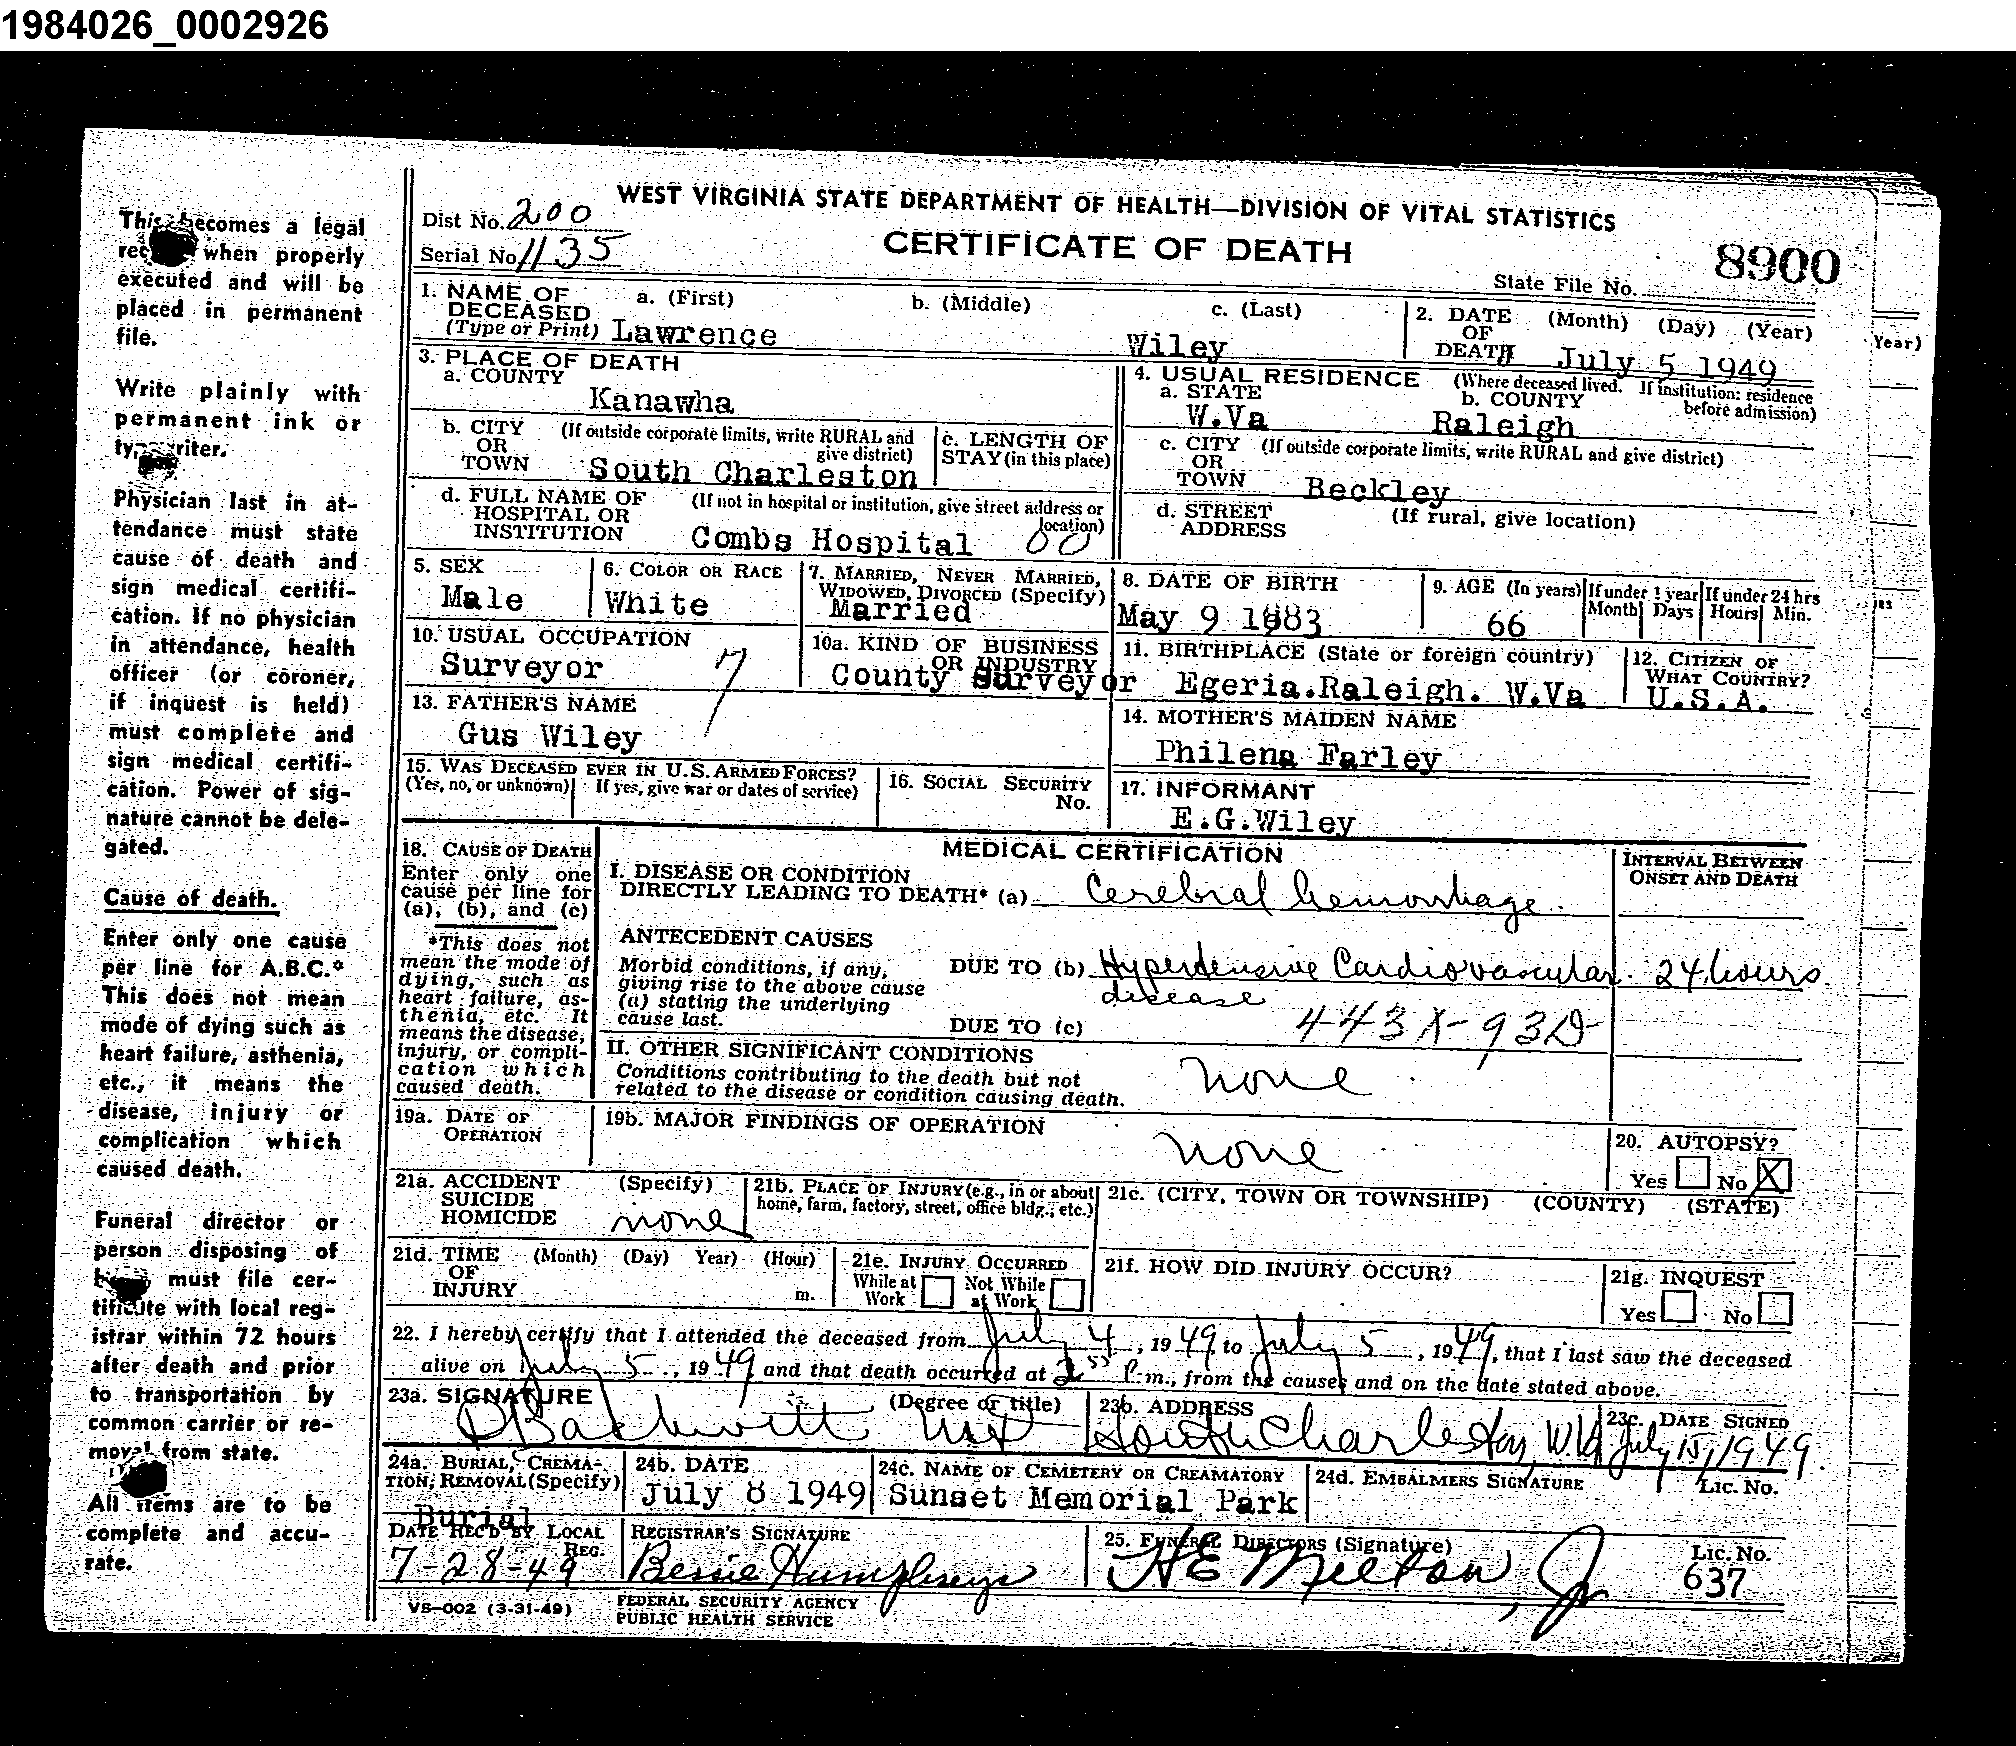 1984026_0002926
WEST VIRGINIA STATE DEPARTMENT OF HEALTH—DIVISION OF VITAL STATISTICS
CERTIFICATE OF DEATH
Dist No. 200
Serial No. 1135
State File No. 8900
This becomes a legal
when properly
executed and will be
placed in permanent
file.
Write plainly with
permanent ink or
Physician last in at-
tendance must state
cause of death and
sign medical certifi-
cation. If no physician
in attendance, health
officer (or coroner,
if inquest is held)
must complete and
sign medical certifi-
cation. Power of sig-
nature cannot be dele-
gated.
Cause of death.
Enter only one cause
per line for A.B.C.*
This does not mean
mode of dying such as
heart failure, asthenia,
etc., it means the
disease, injury or
complication which
caused death.
Funeral director or
person disposing of
must file cer-
tificate with local reg-
istrar within 72 hours
after death and prior
to transportation by
common carrier or re-
moval from state.
All items are to be
complete and accu-
rate.
1. NAME OF DECEASED (Type or Print)
a. (First) b. (Middle) c. (Last)
Lawrence Wiley
2. DATE OF DEATH (Month) (Day) (Year)
July 5 1949
Year)
3. PLACE OF DEATH
a. COUNTY
Kanawha
b. CITY OR TOWN (If outside corporate limits, write RURAL and give district)
South Charleston
c. LENGTH OF STAY (in this place)
d. FULL NAME OF HOSPITAL OR INSTITUTION (If not in hospital or institution, give street address or location)
Combs Hospital 00
4. USUAL RESIDENCE (Where deceased lived. If institution: residence before admission)
a. STATE
W.Va
b. COUNTY
Raleigh
c. CITY OR TOWN (If outside corporate limits, write RURAL and give district)
Beckley
d. STREET ADDRESS (If rural, give location)
5. SEX
Male
6. COLOR OR RACE
White
7. MARRIED, NEVER MARRIED, WIDOWED, DIVORCED (Specify)
Married
8. DATE OF BIRTH
May 9 1883
9. AGE (In years)
66
If under 1 year Month Days
If under 24 hrs Hours Min.
10. USUAL OCCUPATION
Surveyor 7
10a. KIND OF BUSINESS OR INDUSTRY
County Surveyor
11. BIRTHPLACE (State or foreign country)
Egeria.Raleigh. W.Va
12. CITIZEN OF WHAT COUNTRY?
U.S.A.
13. FATHER'S NAME
Gus Wiley
14. MOTHER'S MAIDEN NAME
Philena Farley
15. WAS DECEASED EVER IN U.S. ARMED FORCES?
(Yes, no, or unknown) If yes, give war or dates of service)
16. SOCIAL SECURITY No.
17. INFORMANT
E.G.Wiley
18. CAUSE OF DEATH
Enter only one
cause per line for
(a), (b), and (c)
*This does not
mean the mode of
dying, such as
heart failure, as-
thenia, etc. It
means the disease,
injury, or compli-
cation which
caused death.
MEDICAL CERTIFICATION
INTERVAL BETWEEN ONSET AND DEATH
I. DISEASE OR CONDITION
DIRECTLY LEADING TO DEATH* (a) Cerebral hemorrhage
ANTECEDENT CAUSES
Morbid conditions, if any,
giving rise to the above cause
(a) stating the underlying
cause last.
DUE TO (b) Hypertensive Cardiovascular 24 hours
disease
DUE TO (c) 443X-93D
II. OTHER SIGNIFICANT CONDITIONS
Conditions contributing to the death but not
related to the disease or condition causing death.
none
19a. DATE OF OPERATION
19b. MAJOR FINDINGS OF OPERATION
none
20. AUTOPSY?
Yes No X
21a. ACCIDENT SUICIDE HOMICIDE (Specify)
none
21b. PLACE OF INJURY (e.g., in or about home, farm, factory, street, office bldg., etc.)
21c. (CITY, TOWN OR TOWNSHIP) (COUNTY) (STATE)
21d. TIME OF INJURY (Month) (Day) Year) (Hour) m.
21e. INJURY OCCURRED
While at Work Not While at Work
21f. HOW DID INJURY OCCUR?
21g. INQUEST
Yes No
22. I hereby certify that I attended the deceased from July 4, 1949, to July 5, 1949, that I last saw the deceased
alive on July 5, 1949, and that death occurred at P.m., from the causes and on the date stated above.
23a. SIGNATURE (Degree or title)
23b. ADDRESS
South Charleston, W.Va
23c. DATE SIGNED
July 15, 1949.
24a. BURIAL, CREMATION, REMOVAL (Specify)
Burial
24b. DATE
July 8 1949
24c. NAME OF CEMETERY OR CREAMATORY
Sunset Memorial Park
24d. EMBALMERS SIGNATURE Lic. No.
DATE REC'D BY LOCAL REG.
7-28-49
REGISTRAR'S SIGNATURE
Bessie Humphreys
25. FUNERAL DIRECTORS (Signature)
HE Melton, Jr
Lic. No.
637
VS-002 (3-31-49)
FEDERAL SECURITY AGENCY
PUBLIC HEALTH SERVICE